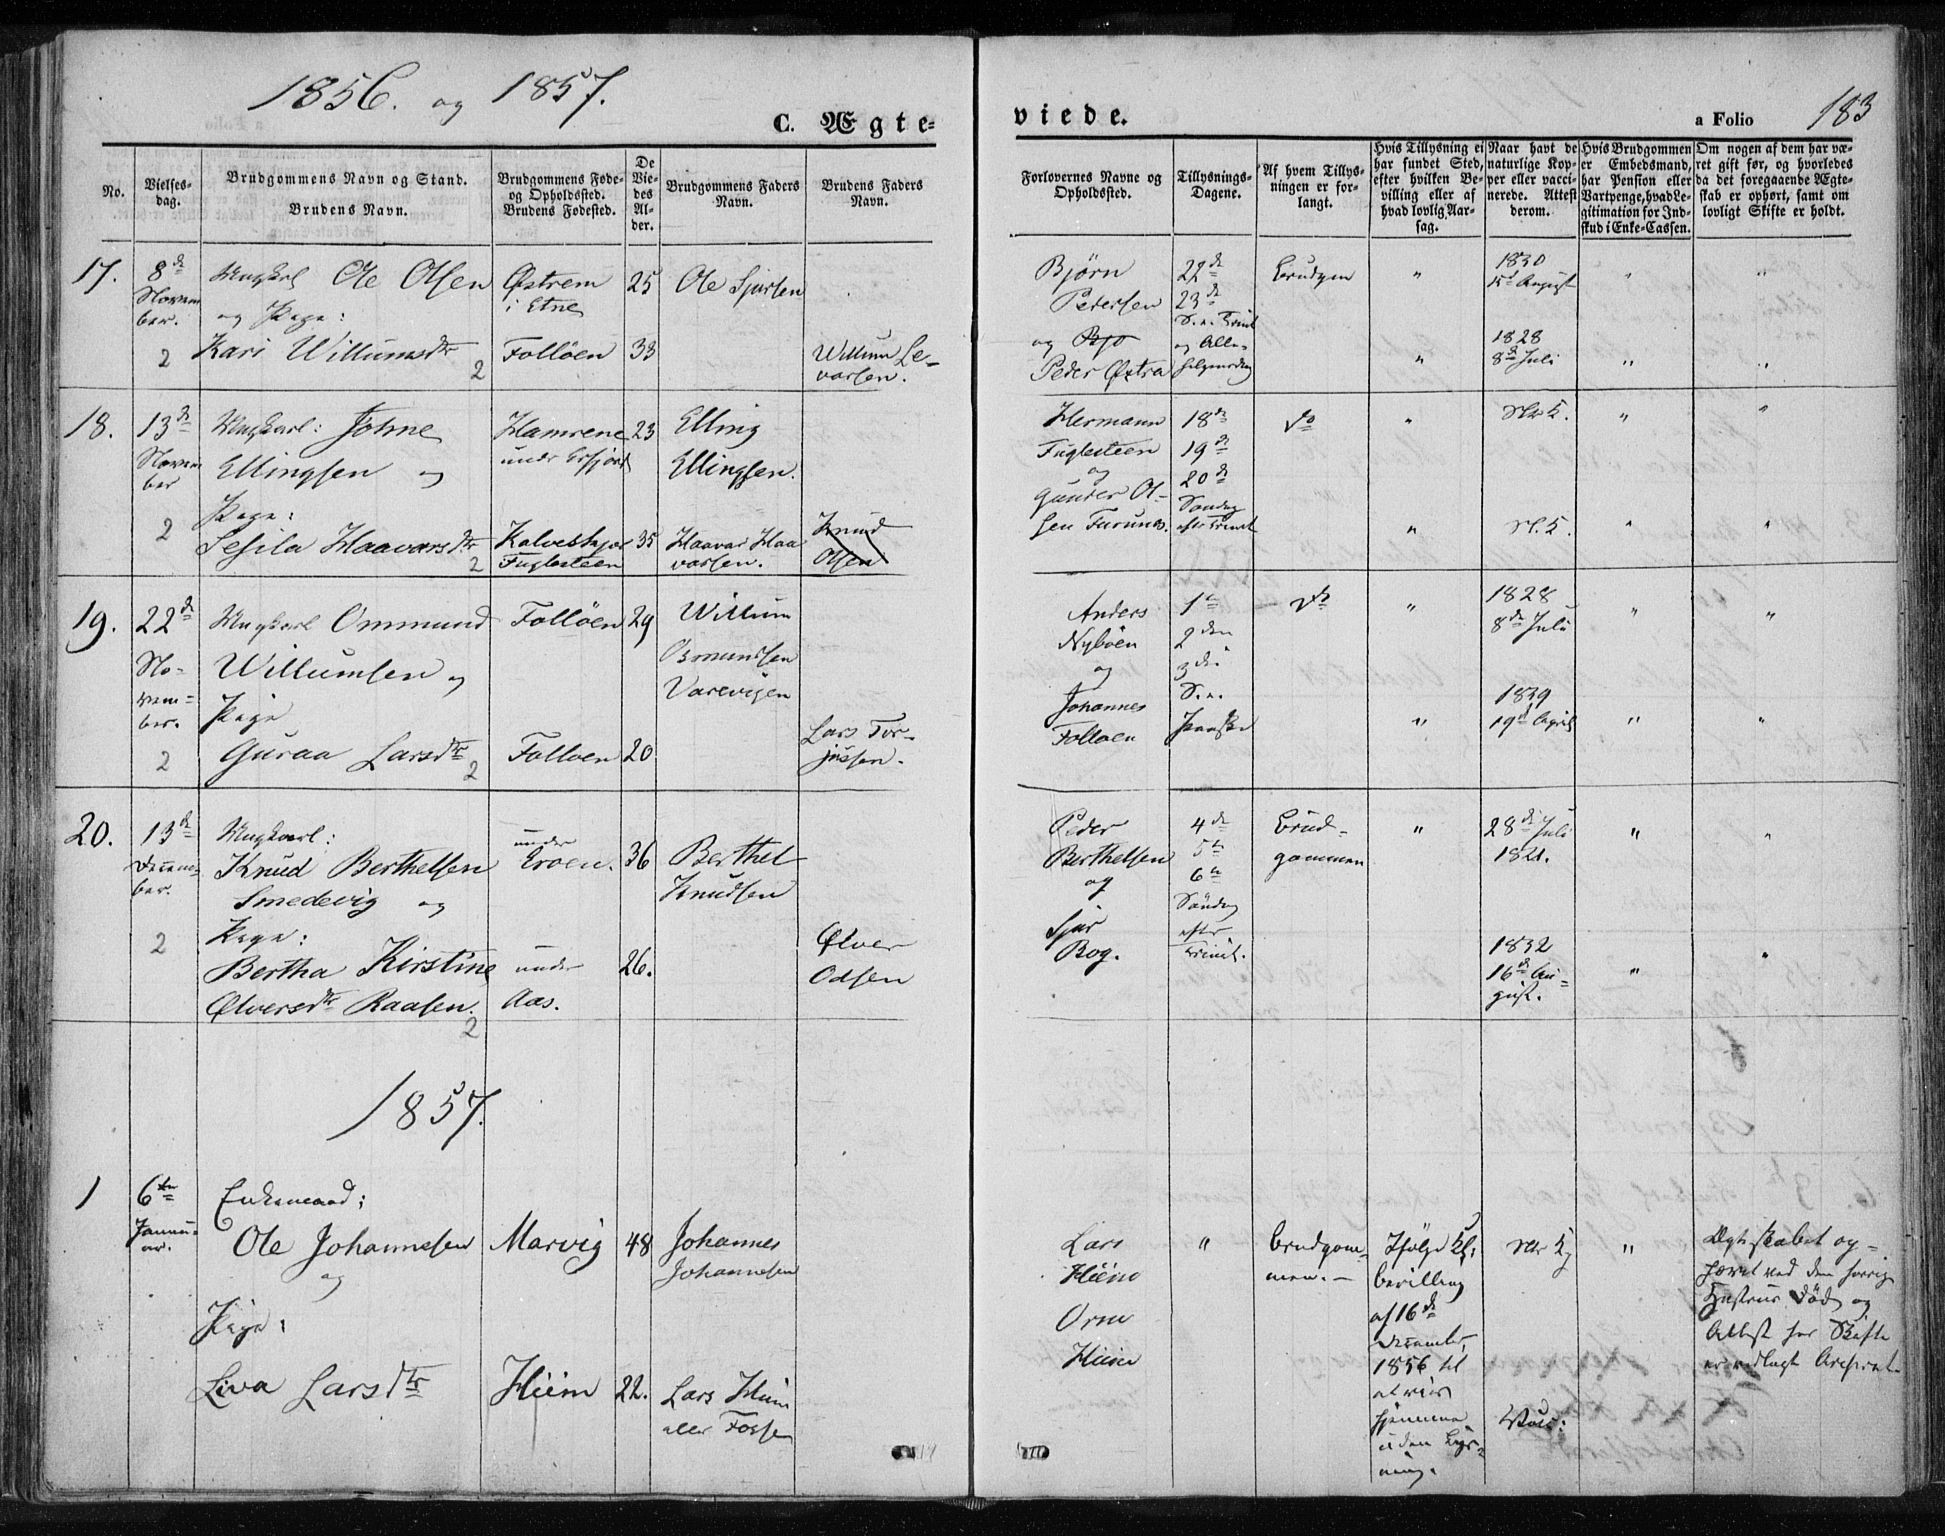 1856. og 1857.
C. Ægte-
viede.
a Folio
183
No.
Vielses-
dag.
Brudgommens Navn og Stand.
Brudens Navn.
Brudgommens Føde-
og Opholdssted.
Brudens Fødested.
De
Vie-
des
Al-
der.
Brudgommens Faders
Navn.
Brudens Faders
Navn.
Forlovernes Navne og
Opholdssted.
Tillysnings-
Dagene.
Af hvem Tillys-
ningen er for-
langt.
Hvis Tillysning ei
har fundet Sted,
efter hvilken Be-
villing eller af
hvad lovlig Aar-
sag.
Naar havt de
naturlige Kop-
per eller vacci-
nerede. Attest
derom.
Hvis Brudgommen
er Embedsmand,
har Pension eller
Vartpenge, hvad Le-
gitimation for Ind-
skud i Enke-Cassen.
Om nogen af dem har væ-
ret gift før, og hvorledes
da det foregaaende Ægte-
skab er ophørt, samt om
lovligt Skifte er holdt.
17.
8de
Novem
ber.
2
Ungkarl Ole Olsen
og Pige:
Kari Willumsdtr
2
Østrem
i Etne
Folløen
25
33
Ole Sjursen
Willum Le-
varsen.
Bjørn
Pedersen
og Bjo
Peder Østra
22de
23de
S. e. Trinit
og Alle-
helgensdag
Brudgm
"
"
1830
15de August
1828
8de Juli
"
"
"
"
18.
13de
Novem
ber
2
Ungkarl: Johne
Ellingsen og
Pige:
Sesila Haavarsdtr
2
Hamrene
under Erfjord
Kalveskjær
Fuglesteen
23
35
Elling
Ellingsen.
Haavar Haa
varsen.
Knud
Olsen
Hermann
Fuglesteen
og
Gunder Ol-
sen Furunes.
18de
19de
20de
Søndag
efter Trinit
do
"
"
"
"
"
"
19.
22de
No-
vem-
ber.
2
Ungkarl Ommund
Willumsen og
Pige
Guraa Larsdtr
2
Folløen
Folloen
29
20
Willum
Osmundsen
Varevigen
Lars Tor-
jussen.
Anders
Nybøen
og
Johannes
Folloen
1ste
2den
3die
S. e.
do
"
"
1828
8de Juli
1839
19de April
"
"
"
"
20.
13de
Decem-
ber.
2
Ungkarl:
Knud Berthelsen
Smedevig og
Pige:
Bertha Kirstine
Ølversdtr Raasen.
2
under
Eroen.
under
Aas.
36
26.
Berthel
Knudsen
Ølver
Odsen
Peder
Berthelsen
og
Sjur
Bog.
4de
5te
6te
Søndag
efter
Trinit.
Brud-
gommen
"
28de Juli
1821.
1832
16de Au-
gust.
"
"
"
"
1857.
1
6te
Janu-
ar.
Enkemand:
Ole Johannesen
og
Pige:
Liva Larsdtr
Marvig
Hiim
48
22.
Johannes
Johannesen
Lars Hiim
eller Fosse
Lars
Hiim
Orm
Hiim
"
Brudgom-
men.-
Ifølge Kgl.
Bevilling
af 16de
December
1856 til
at vies
hjemme
uden Lys-
ning.
"
Egteskabet op-
hævet ved den forrige
Hustrus Død og
Attest for Skifte
er vedlagt Archivet